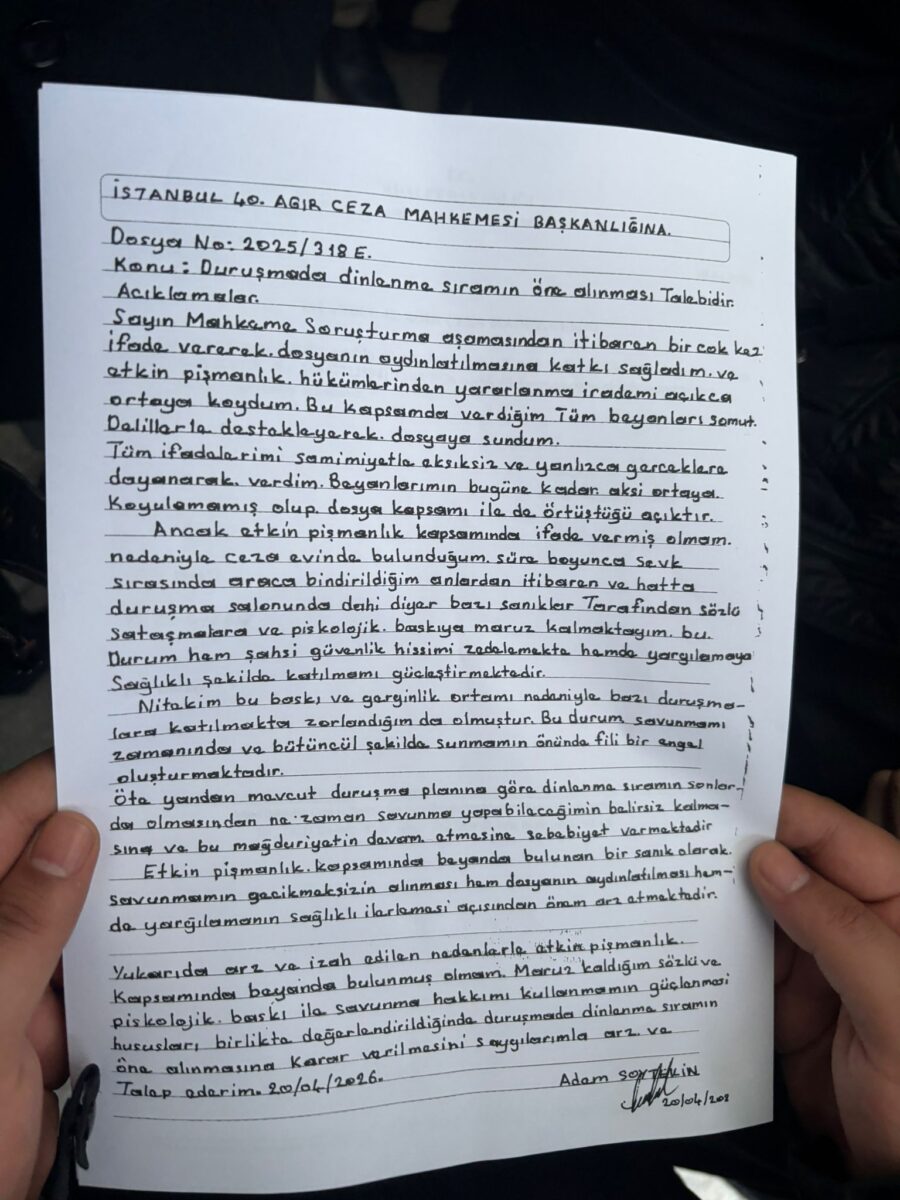 İSTANBUL 40. AĞIR CEZA MAHKEMESİ BAŞKANLIĞINA.
Dosya No: 2025/318 E.
Konu: Duruşmada dinlenme sıramın öne alınması Talebidir.
Acıklamalar.
Sayın Mahkeme Soruşturma aşamasından itibaren bir cok kez
ifade vererek. dosyanın aydınlatılmasına katkı sağladım. ve
etkin pişmanlık. hükümlerinden yararlanma irademi açıkca
ortaya koydum. Bu kapsamda verdiğim Tüm beyanları somut.
Delillerle destekleyerek. dosyaya sundum.
Tüm ifadelerimi samimiyetle eksiksiz ve yanlızca gerceklere
dayanarak. verdim. Beyanlarımın bugüne kadar. aksi ortaya.
Koyulamamış olup. dosya kapsamı ile de örtüştüğü açıktır.
Ancak etkin pişmanlık kapsamında ifade vermiş olmam.
nedeniyle ceza evinde bulunduğum. süre boyunca sevk
sırasında araca bindirildiğim anlardan itibaren ve hatta
duruşma salonunda dahi diyer bazı sanıklar Tarafından sözlü
Sataşmalara ve piskolojik. baskıya maruz kalmaktayım. bu.
Durum hem şahsi güvenlik hissimi zedelemekte hemde yargılamaya
Sağlıklı şekilde katılmamı gücleştirmektedir.
Nitekim bu baskı ve gerginlik ortamı nedeniyle bazı duruşma-
lara katılmakta zorlandığım da olmuştur. Bu durum savunmamı
zamanında ve bütüncül şekilde sunmamın önünde fili bir engel
oluşturmaktadır.
Öte yandan mevcut duruşma planına göre dinlenme sıramın sonlar-
da olmasından ne zaman savunma yapabileceğimin belirsiz kalma-
sına ve bu mağduriyetin devam etmesine sebebiyet vermektedir
Etkin pişmanlık. kapsamında beyanda bulunan bir sanık olarak.
savunmamın gecikmeksizin alınması hem dosyanın aydınlatılması hem-
de yargılamanın sağlıklı ilerlemesi açısından önem arz etmektedir.
Yukarıda arz ve izah edilen nedenlerle etkin pişmanlık.
Kapsamında beyanda bulunmuş olmam. Maruz kaldığım sözlü ve
piskolojik. baskı ile savunma hakkımı kullanmamın güçlenmesi
hususları birlikte değerlendirildiğinde duruşmada dinlenme sıramın
öne alınmasına Karar verilmesini saygılarımla arz. ve
Talep ederim. 20/04/2026.
Adem SOYTEKİN
20/04/20